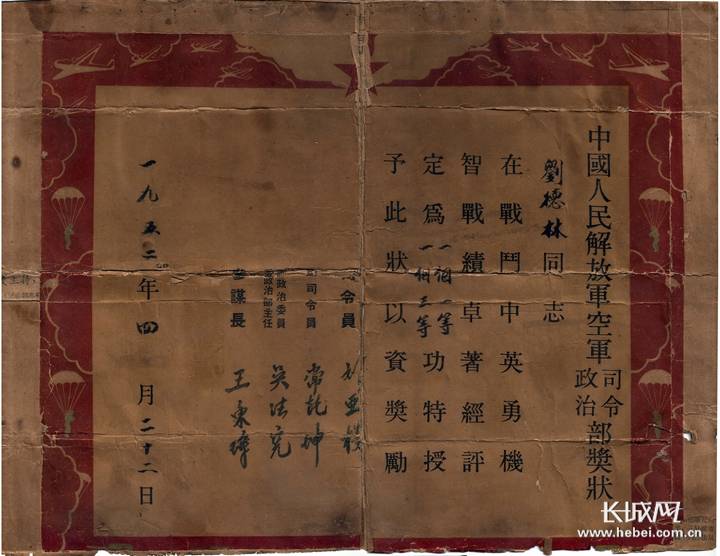 中國人民解放軍空軍司令政治部獎狀
劉德林同志
在戰鬥中英勇機
智戰績卓著經評
定爲一個一等一個三等功特授
予此狀以資獎勵
令員
司令員 常乾坤
政治委員
政治部主任 吳法憲
謀長 王秉璋
一九五二年四月二十二日
长城网
www.hebei.com.cn